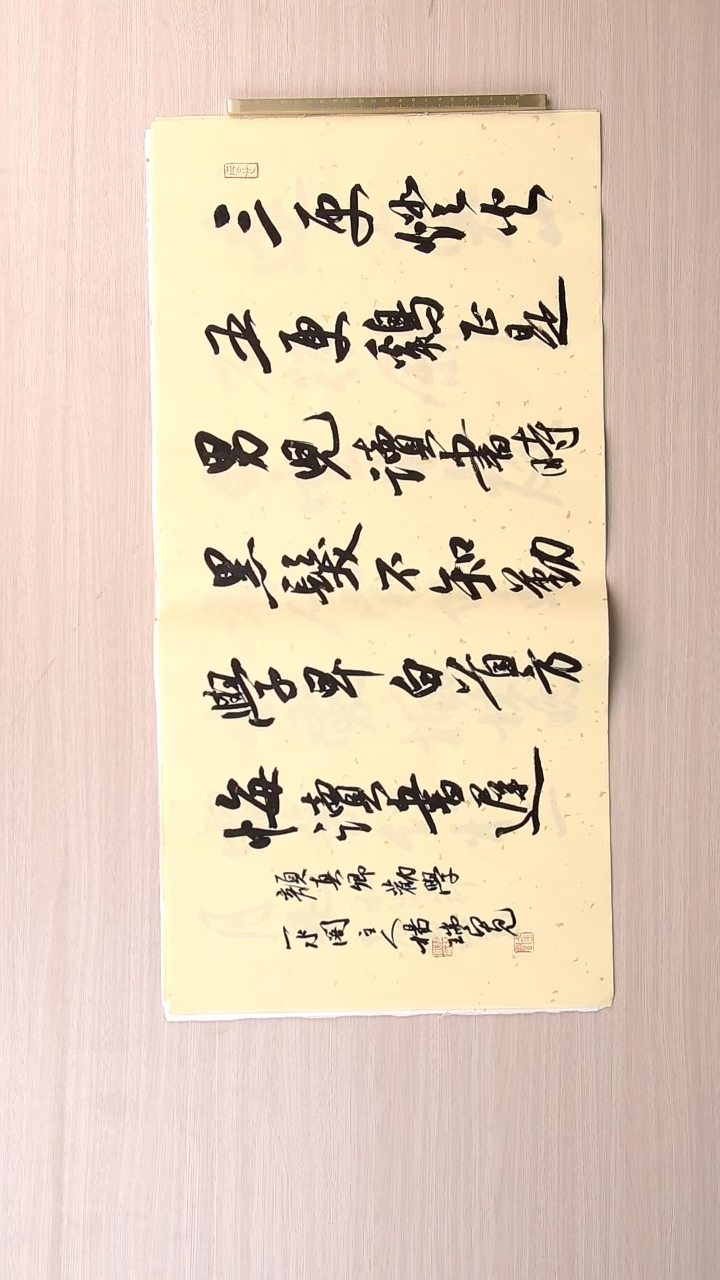 三更燈火
五更鷄正是
男兒讀書時
黑髮不知勤
學早白首方
悔讀書遲
顏真卿勸學
一水閣主人楊瑞